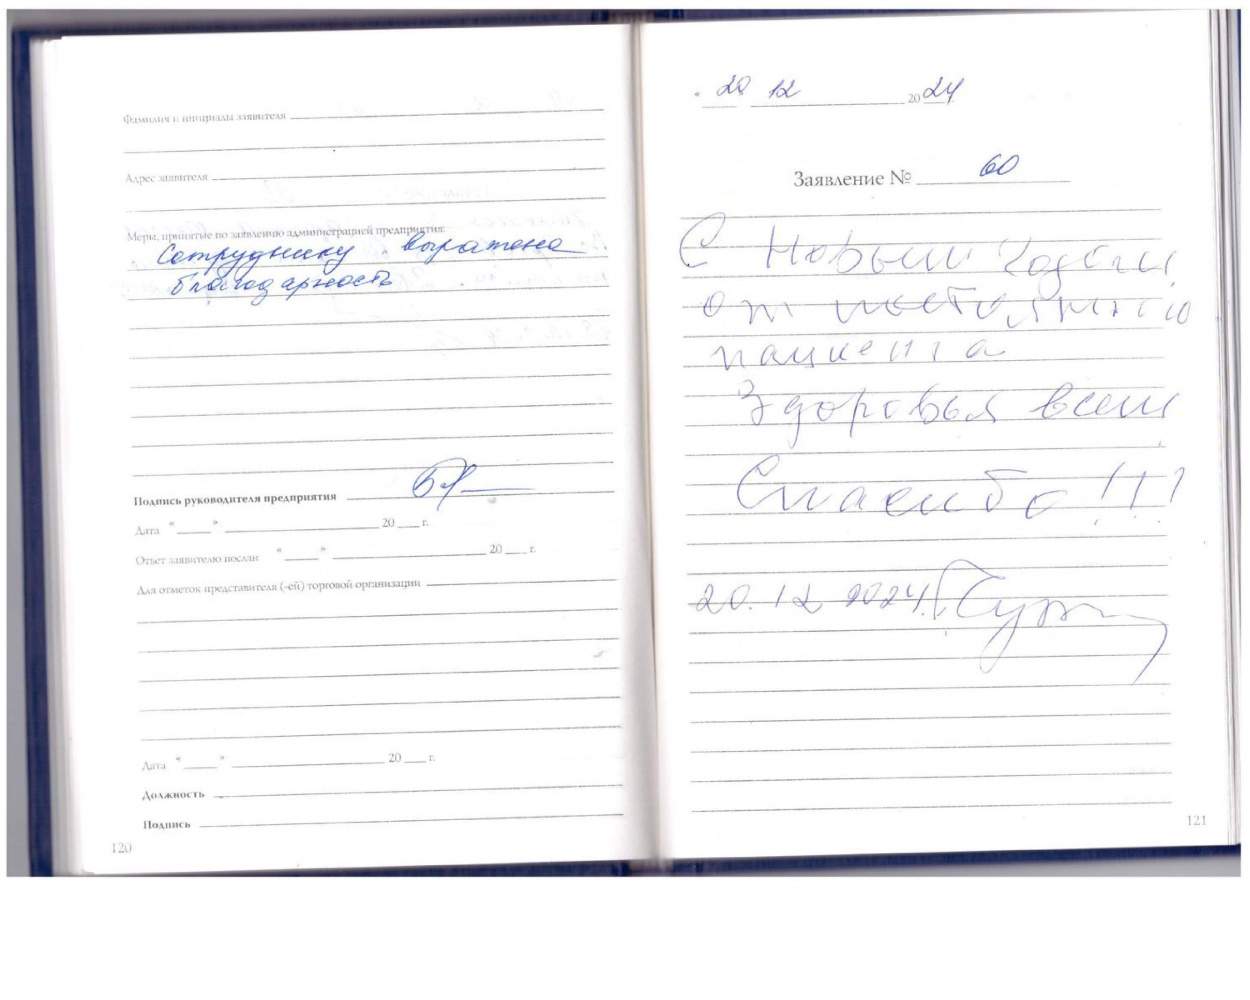 Фамилия и инициалы заявителя
Адрес заявителя
Меры, принятые по заявлению администрацией предприятия:
Сотруднику выражена
благодарность
Подпись руководителя предприятия
Дата “ ” 20 г.
Ответ заявителю послан “ ” 20 г.
Для отметок представителя (-ей) торговой организации
Дата “ ” 20 г.
Должность
Подпись
120
“ 20 12 2024
Заявление № 60
С Новым Годом
от постоянного
пациента
Здоровья всем
Спасибо!!!
20.12.2024.
121